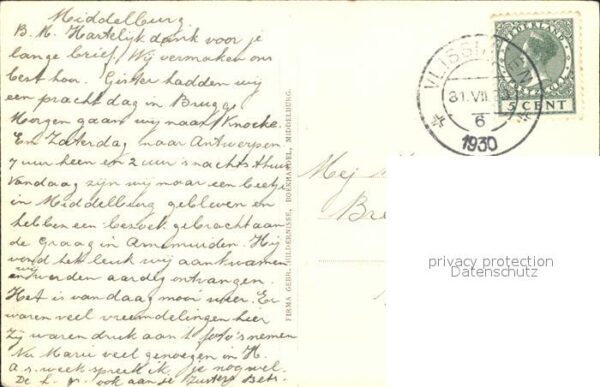 Middelburg.
B. M. Hartelijk dank voor je
lange brief! Wij vermaken ons
best hoor. Gister hadden wij
een pracht dag in Brugge
Morgen gaan wij naar Knocke.
En Zaterdag naar Antwerpen
7 uur heen en 2 uur 's nachts thuis
Vandaag zijn wij maar een beetje
in Middelburg gebleven en
hebben een bezoek gebracht aan
de Graag in Arnemuiden. Hij
vond het leuk wij aankwamen
en wij werden aardig ontvangen.
Het is vandaag mooi weer. Er
waren veel vreemdelingen hier
Zij waren druk aan 't foto's nemen
Nu Marie veel genoegen in H.
a.s. week spreek ik je nog wel.
De ook aan de Zusters Bets.
FIRMA GEBR. HILDERNISSE, BOEKHANDEL, MIDDELBURG.
NEDERLAND
5 CENT
VLISSINGEN
31.VII
6
1930
Mej
Bre
privacy protection
Datenschutz